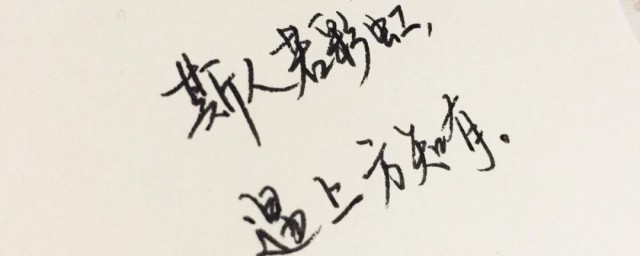 斯人若彩虹,
遇上方知有。